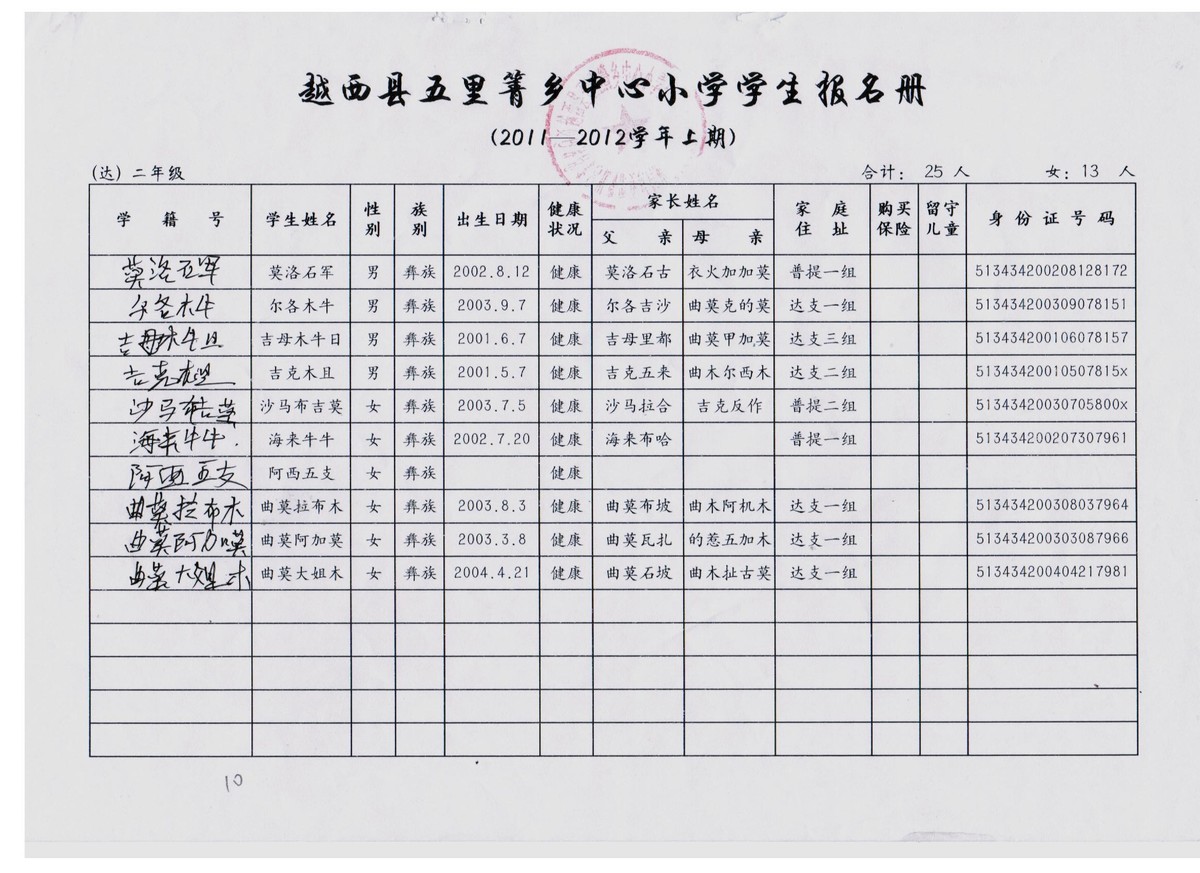 越西县五里箐乡中心小学学生报名册
(2011—2012学年上期)
(达) 二年级 合计: 25 人 女: 13 人
学籍号 学生姓名 性别 族别 出生日期 健康状况 家长姓名 父亲 母亲 家庭住址 购买保险 留守儿童 身份证号码
莫洛石军 莫洛石军 男 彝族 2002.8.12 健康 莫洛石古 衣火加加莫 普提一组 513434200208128172
尔各木牛 尔各木牛 男 彝族 2003.9.7 健康 尔各吉沙 曲莫克的莫 达支一组 513434200309078151
吉母木牛日 吉母木牛日 男 彝族 2001.6.7 健康 吉母里都 曲莫甲加莫 达支三组 513434200106078157
吉克木且 吉克木且 男 彝族 2001.5.7 健康 吉克五来 曲木尔西木 达支二组 51343420010507815x
沙马布吉莫 沙马布吉莫 女 彝族 2003.7.5 健康 沙马拉合 吉克反作 普提二组 51343420030705800x
海来牛牛 海来牛牛 女 彝族 2002.7.20 健康 海来布哈 普提一组 513434200207307961
阿西五支 阿西五支 女 彝族 健康
曲莫拉布木 曲莫拉布木 女 彝族 2003.8.3 健康 曲莫布坡 曲木阿机木 达支一组 513434200308037964
曲莫阿加莫 曲莫阿加莫 女 彝族 2003.3.8 健康 曲莫瓦扎 的惹五加木 达支一组 513434200303087966
曲莫大姐木 曲莫大姐木 女 彝族 2004.4.21 健康 曲莫石坡 曲木扯古莫 达支一组 513434200404217981
10